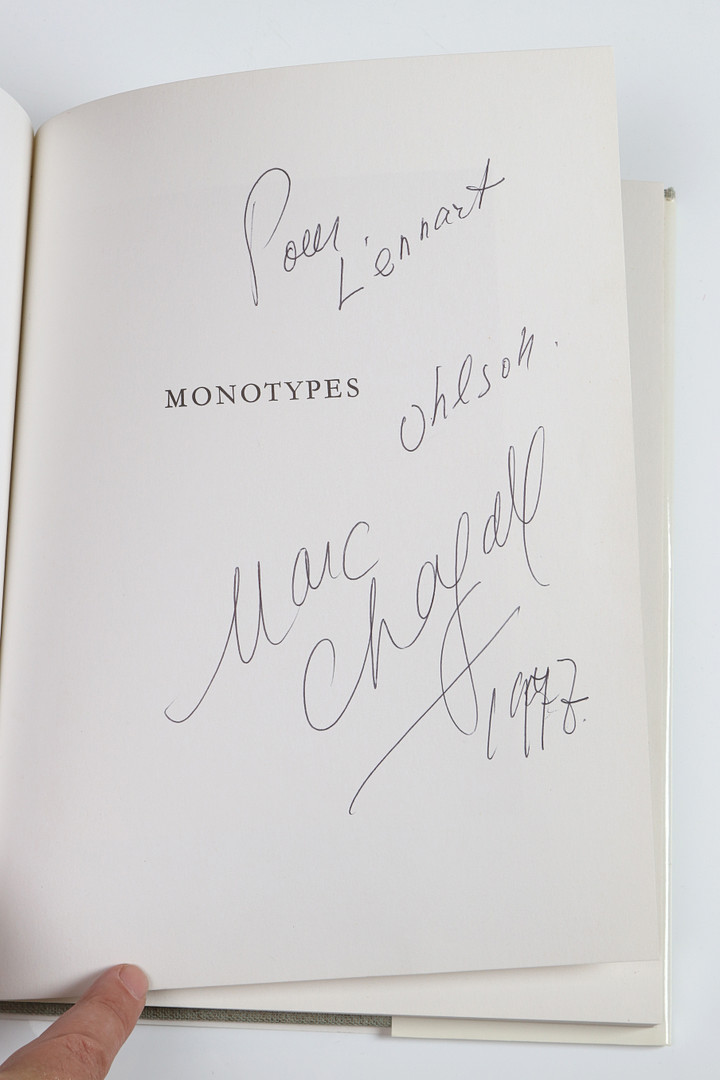 Pour
Lennart
MONOTYPES
Ohlson.
Marc
Chagall
1977.